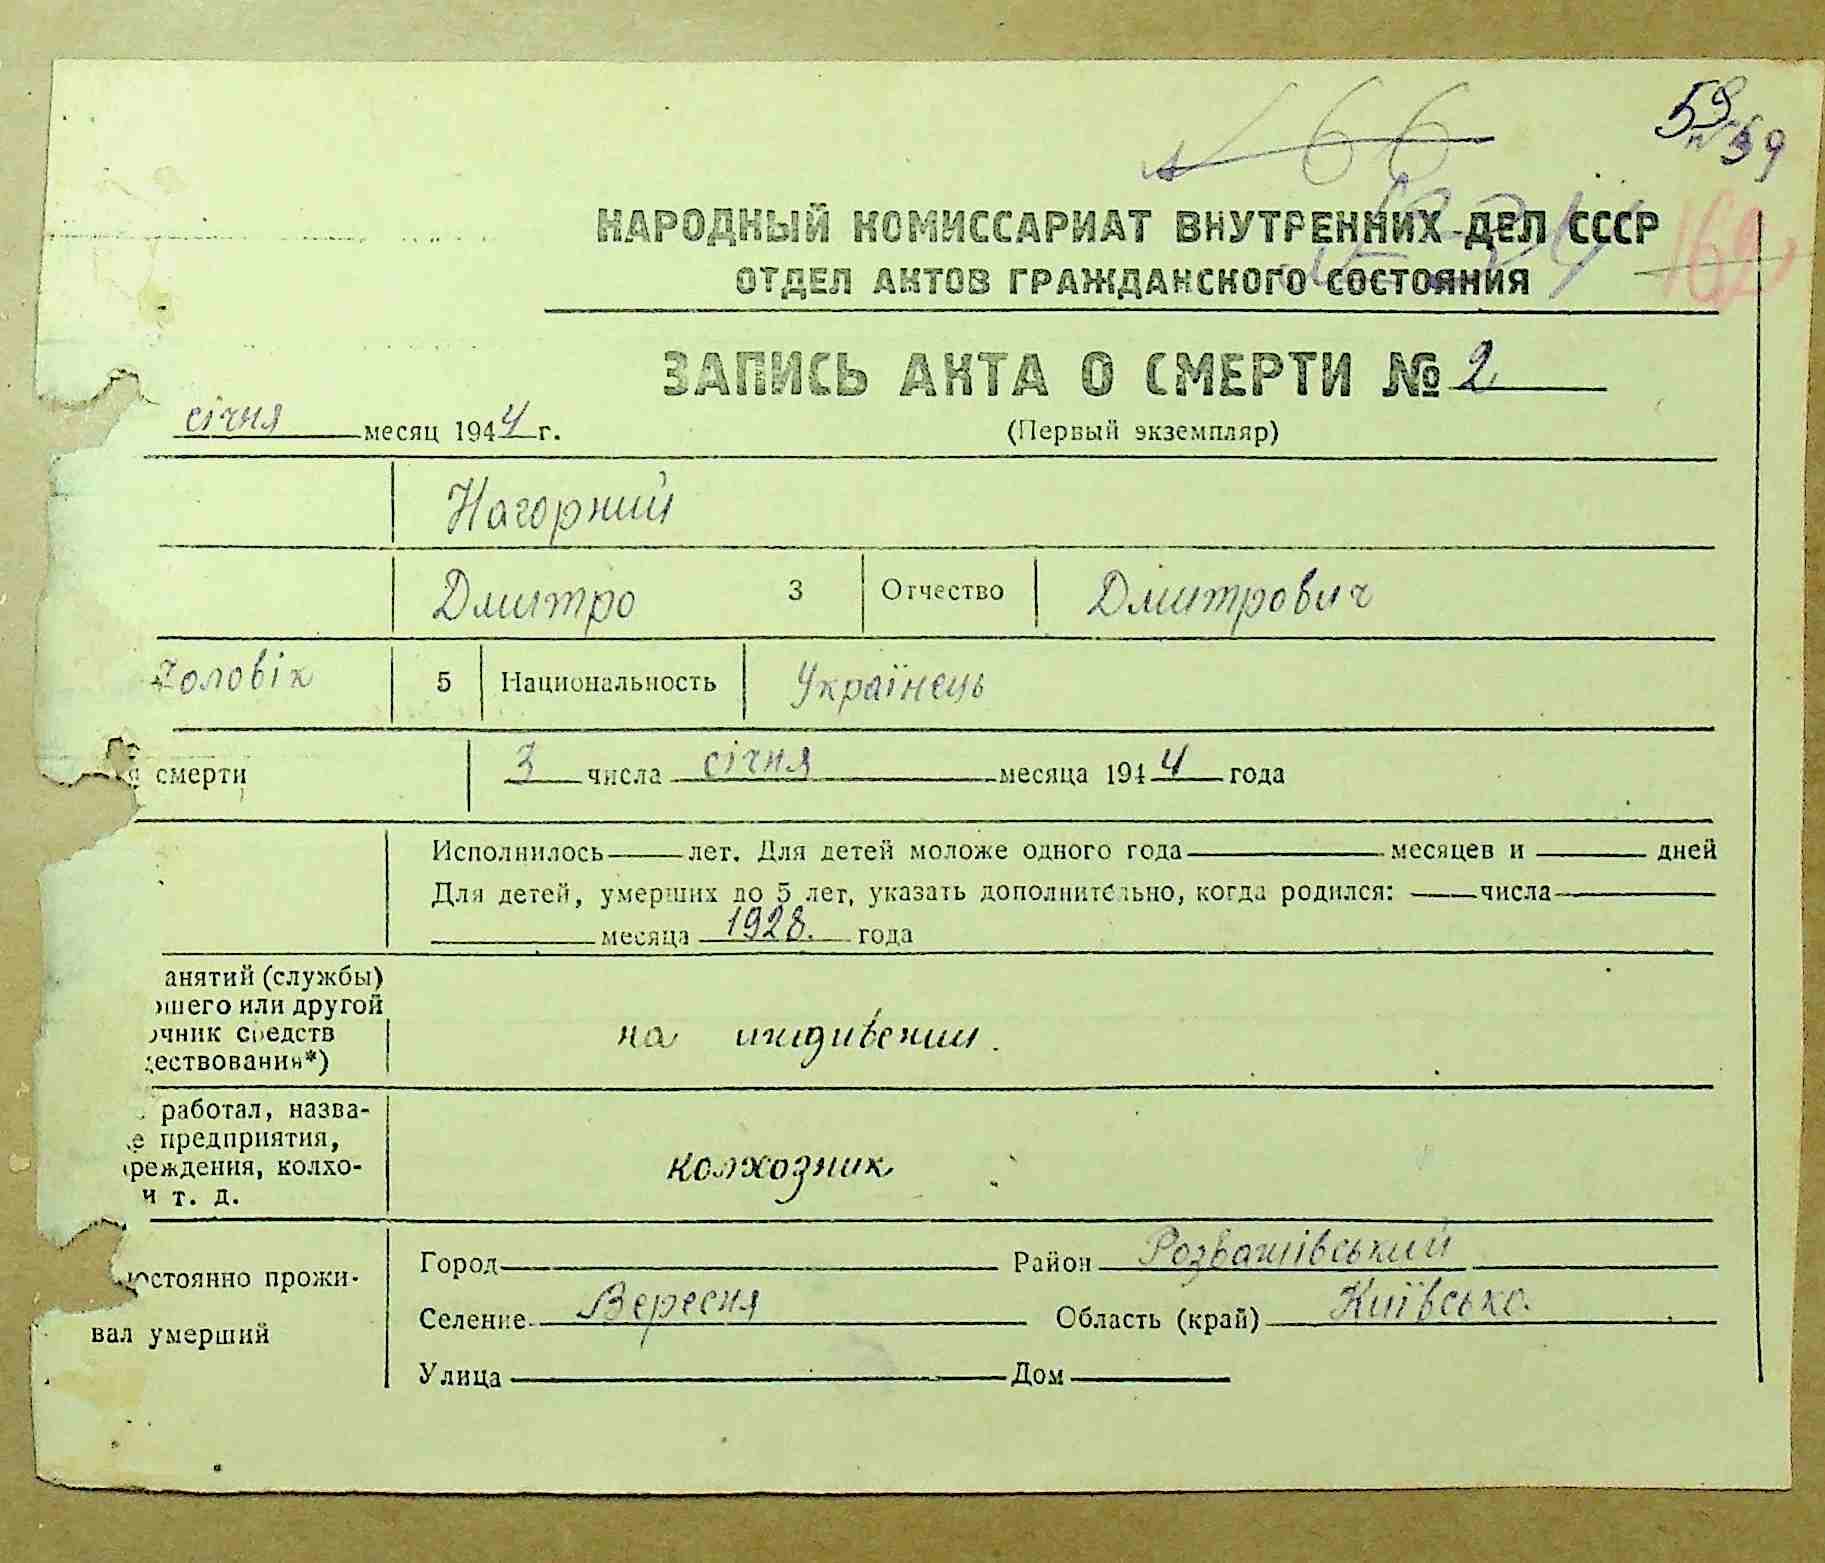 66
59
№ 59
162
НАРОДНЫЙ КОМИССАРИАТ ВНУТРЕННИХ ДЕЛ СССР
ОТДЕЛ АКТОВ ГРАЖДАНСКОГО СОСТОЯНИЯ
ЗАПИСЬ АКТА О СМЕРТИ № 2
січня месяц 1944 г.
(Первый экземпляр)
Нагорний
Дмитро 3 Отчество Дмитрович
Чоловік 5 Национальность Українець
я смерти 3 числа січня месяца 1944 года
Исполнилось лет. Для детей моложе одного года месяцев и дней
Для детей, умерших до 5 лет, указать дополнительно, когда родился: числа
месяца 1928. года
анятий (службы)
шего или другой
очник средств
ествования*)
на иждивении.
работал, назва-
е предприятия,
реждения, колхо-
и т. д.
колхозник
остоянно прожи-
вал умерший
Город Район Розважівський
Селение Вересня Область (край) Київсько.
Улица Дом